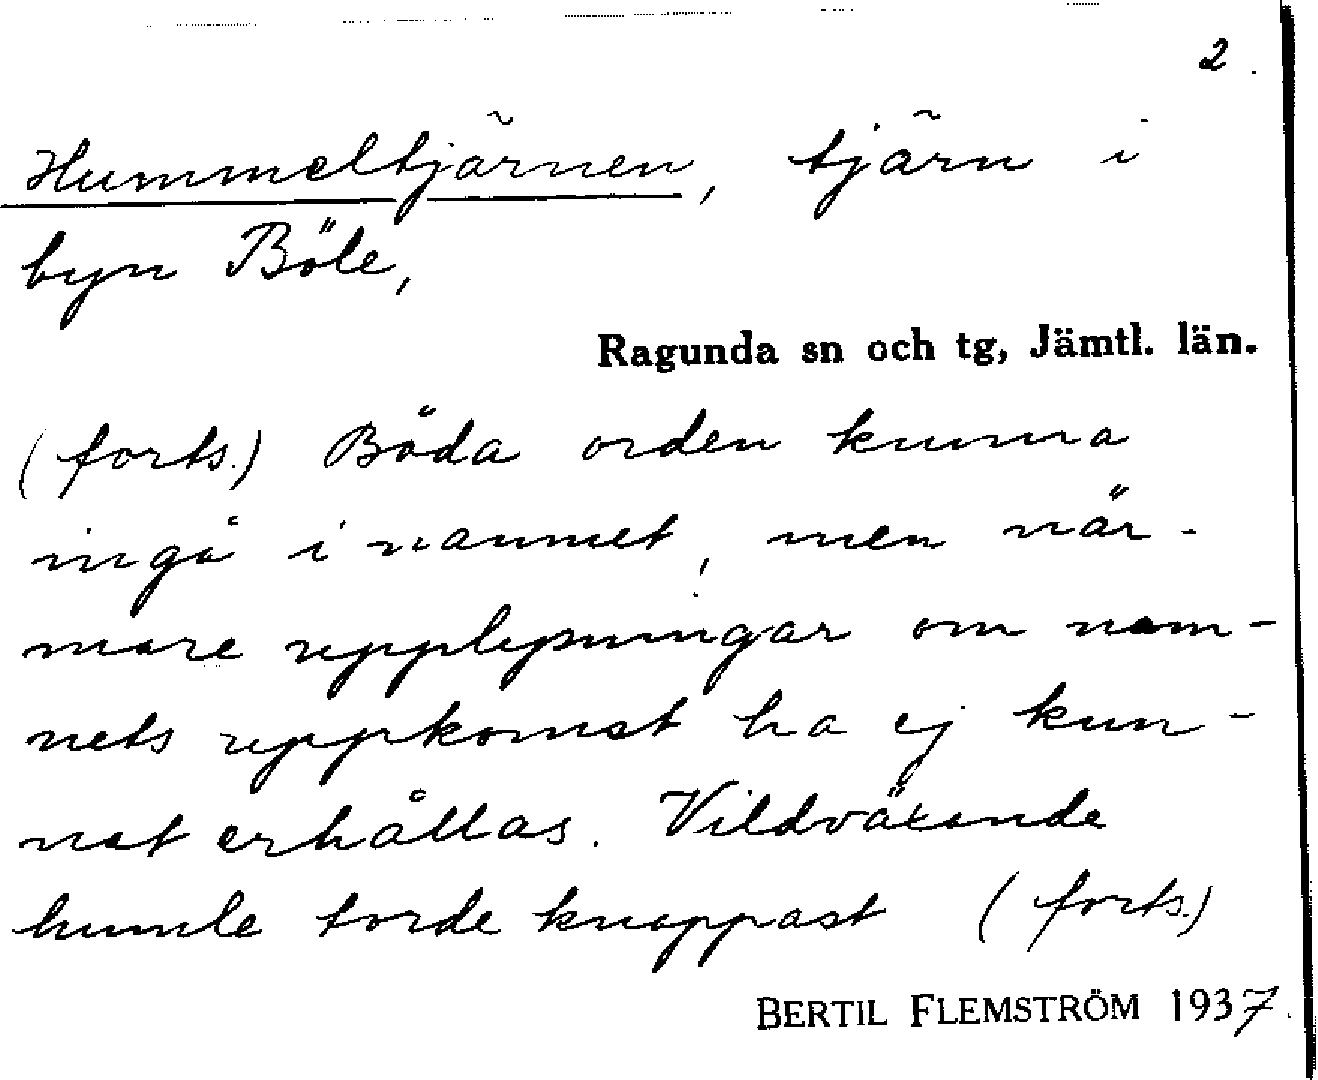 2.
Hummeltjärnen, tjärn i
byn Böle,
Ragunda sn och tg, Jämtl. län.
(forts.) Båda orden kunna
ingå i namnet, men när-
mare upplysningar om nam-
nets uppkomst ha ej kun-
nat erhållas. Vildväxande
humle torde knappast (forts.)
BERTIL FLEMSTRÖM 1937.